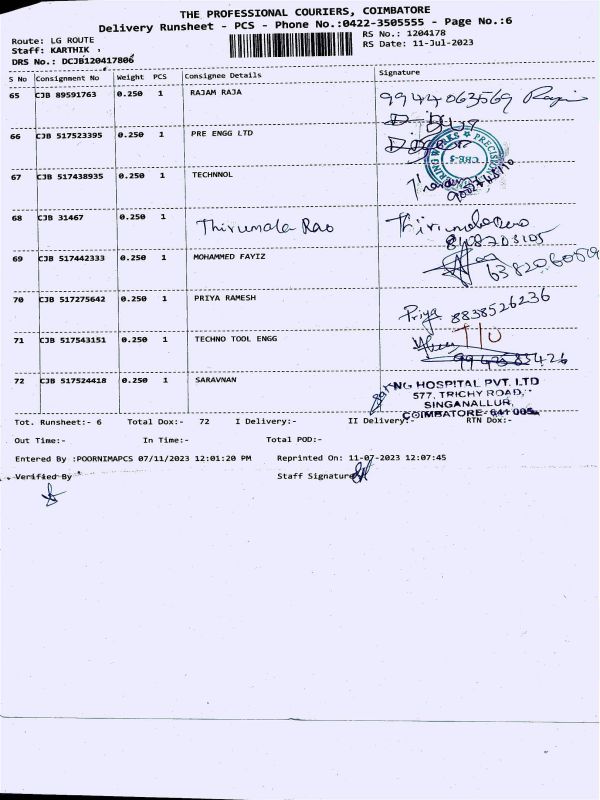 THE PROFESSIONAL COURIERS, COIMBATORE
Delivery Runsheet - PCS - Phone No.:0422-3505555 - Page No.:6
Route: LG ROUTE RS No.: 1204178
Staff: KARTHIK RS Date: 11-Jul-2023
DRS No.: DCJB120417806
S No Consignment No Weight PCS Consignee Details Signature
65 CJB 89591763 0.250 1 RAJAM RAJA 9944063569
66 CJB 517523395 0.250 1 PRE ENGG LTD
67 CJB 517438935 0.250 1 TECHNNOL
68 CJB 31467 0.250 1 Thirumala Rao Thirumala Rao
8148203105
69 CJB 517442333 0.250 1 MOHAMMED FAYIZ 6382060509
70 CJB 517275642 0.250 1 PRIYA RAMESH Priya 8838526236
71 CJB 517543151 0.250 1 TECHNO TOOL ENGG T/O
72 CJB 517524418 0.250 1 SARAVNAN NG HOSPITAL PVT. LTD
577, TRICHY ROAD,
SINGANALLUR,
COIMBATORE-641 005.
Tot. Runsheet:- 6 Total Dox:- 72 I Delivery:- II Delivery:- RTN Dox:-
Out Time:- In Time:- Total POD:-
Entered By :POORNIMAPCS 07/11/2023 12:01:20 PM Reprinted On: 11-07-2023 12:07:45
Verified By Staff Signature